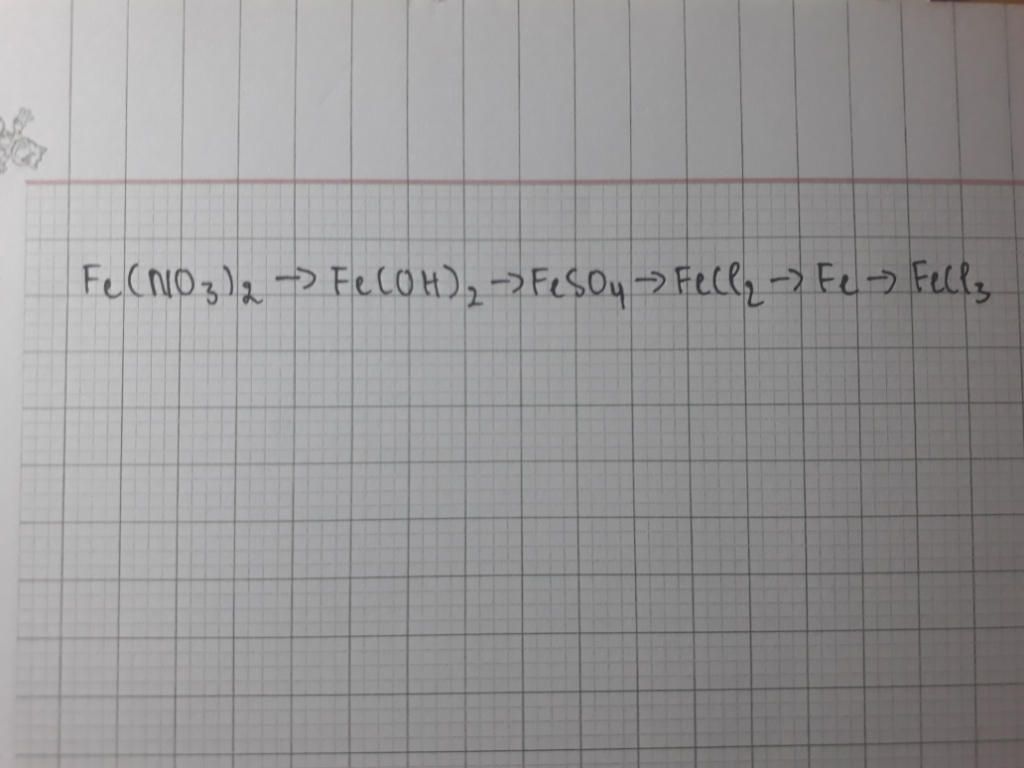 Fe(NO3)2 → Fe(OH)2 → FeSO4 → FeCl2 → Fe → FeCl3